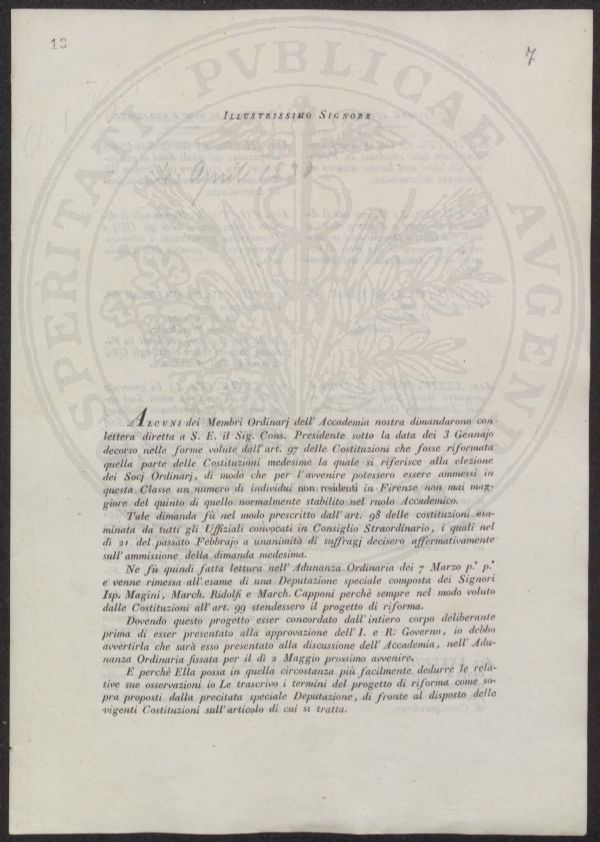 10
7
PROSPERITATI PVBLICAE AVGENDAE
ILLUSTRISSIMO SIGNORE
Aprile 1830
ALCUNI dei Membri Ordinarj dell' Accademia nostra dimandarono con
lettera diretta a S. E. il Sig. Cons. Presidente sotto la data dei 3 Gennajo
decorso nelle forme volute dall' art. 97 delle Costituzioni che fosse riformata
quella parte delle Costituzioni medesime la quale si riferisce alla elezione
dei Socj Ordinarj, di modo che per l'avvenire potessero essere ammessi in
questa Classe un numero di individui non residenti in Firenze non mai mag-
giore del quinto di quello normalmente stabilito nel ruolo Accademico.
Tale dimanda fù nel modo prescritto dall' art. 98 delle costituzioni esa-
minata da tutti gli Uffiziali convocati in Consiglio Straordinario, i quali nel
dì 21 del passato Febbrajo a unanimità di suffragj decisero affermativamente
sull' ammissione della dimanda medesima.
Ne fù quindi fatta lettura nell' Adunanza Ordinaria dei 7 Marzo p.° p.°
e venne rimessa all' esame di una Deputazione speciale composta dei Signori
Isp. Magini, March. Ridolfi e March. Capponi perchè sempre nel modo voluto
dalle Costituzioni all' art. 99 stendessero il progetto di riforma.
Dovendo questo progetto esser concordato dall' intiero corpo deliberante
prima di esser presentato alla approvazione dell' I. e R. Governo, io debbo
avvertirla che sarà esso presentato alla discussione dell' Accademia, nell' Adu-
nanza Ordinaria fissata per il dì 2 Maggio prossimo avvenire.
E perchè Ella possa in quella circostanza più facilmente dedurre le rela-
tive sue osservazioni io Le trascrivo i termini del progetto di riforma come so-
pra proposti dalla precitata speciale Deputazione, di fronte al disposto delle
vigenti Costituzioni sull' articolo di cui si tratta.